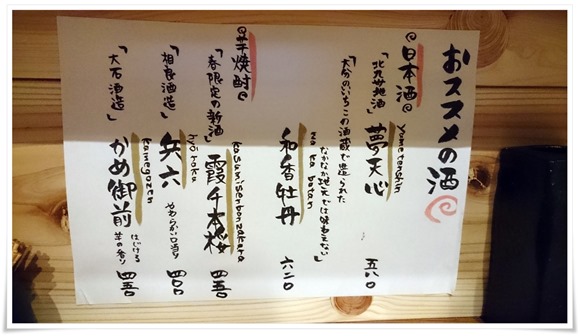 おススメの酒
日本酒
「北九州地酒」
夢天心
yumetenshin
五八〇
「大分のいいちこの酒蔵で造られた
なかなか地元では味わえない」
和香牡丹
wakabotan
六二〇
芋焼酎
「春限定の新酒」
霞千本桜
kasumisenbonzakura
四五〇
「相良酒造」
兵六
hyoroku
やわらかい口当り
四〇〇
「大石酒造」
かめ御前
kamegozen
はじける
芋の香り
四五〇